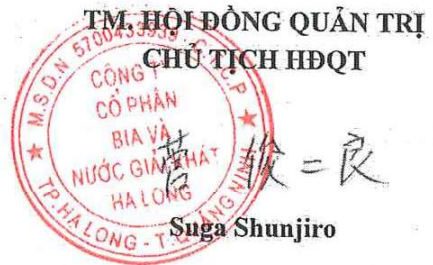 TM. HỘI ĐỒNG QUẢN TRỊ
CHỦ TỊCH HĐQT
M.S.D.N 5700433939 - C.T.C.P
CÔNG TY
CỔ PHẦN
BIA VÀ
NƯỚC GIẢI KHÁT
HẠ LONG
TP. HẠ LONG - T. QUẢNG NINH
菅 俊二良
Suga Shunjiro